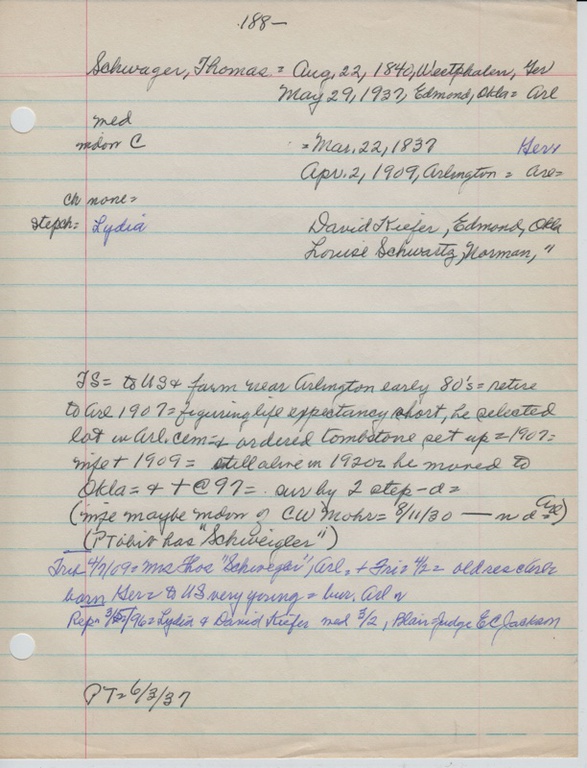 188-
Schwager, Thomas = Aug, 22, 1840, Westphalen, Ger
May 29, 1937, Edmond, Okla = Arl
med
C = Mar. 22, 1837 Ger
Apr. 2, 1909, Arlington = Arl=
ch none =
stepch = Lydia David Kiefer, Edmond, Okla
Louise Schwartz, Norman, "
TS = to US & farm near Arlington early 80's = retire
to Arl 1907 = figuring life expectancy short, he selected
lot in Arl. cem = & ordered tombstone set up = 1907 =
wife + 1909 = still alive in 1920 he moved to
Okla = & + @ 97 = sur by 2 step-d =
(wife maybe wdow of CW Mohr = 8/11/30 — n d Arl =)
(PT obit has "Schweigler")
Trib 4/7/09 = Mrs Thos "Schweger", Arl, + Fri = 4/2 = old res
born Ger = to US very young = bur. Arl
Rep = 3/5/96 = Lydia & David Kiefer med 3/2, Blair = Judge E C Jackson
PT = 6/3/37